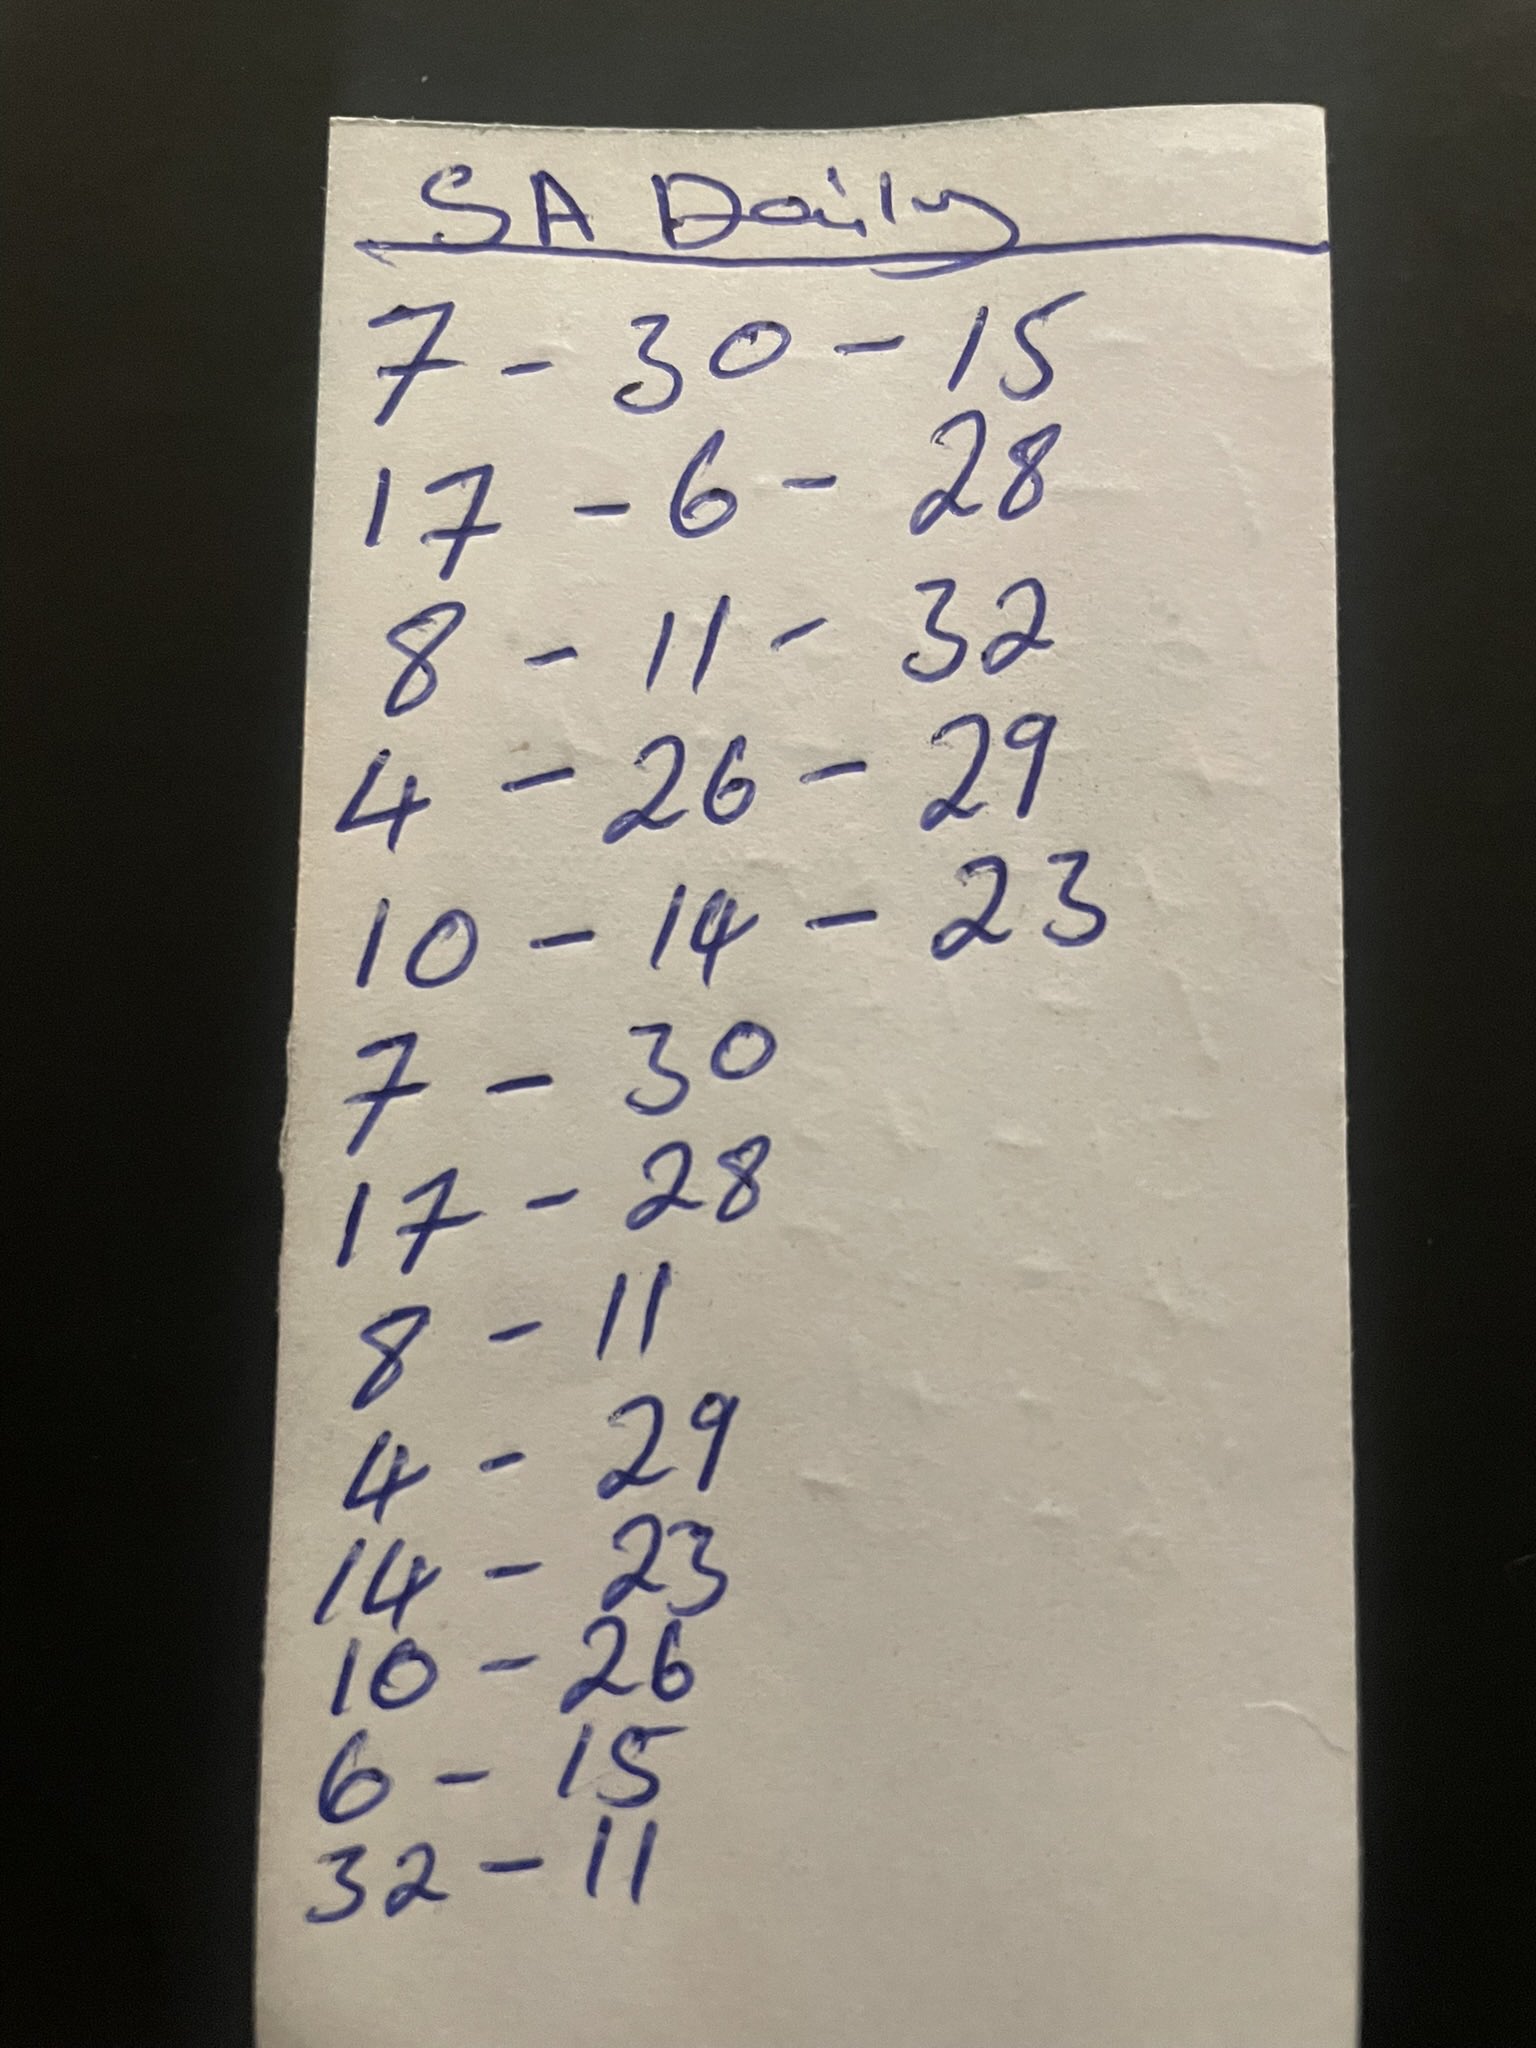 SA Daily
7 - 30 - 15
17 - 6 - 28
8 - 11 - 32
4 - 26 - 29
10 - 14 - 23
7 - 30
17 - 28
8 - 11
4 - 29
14 - 23
10 - 26
6 - 15
32 - 11